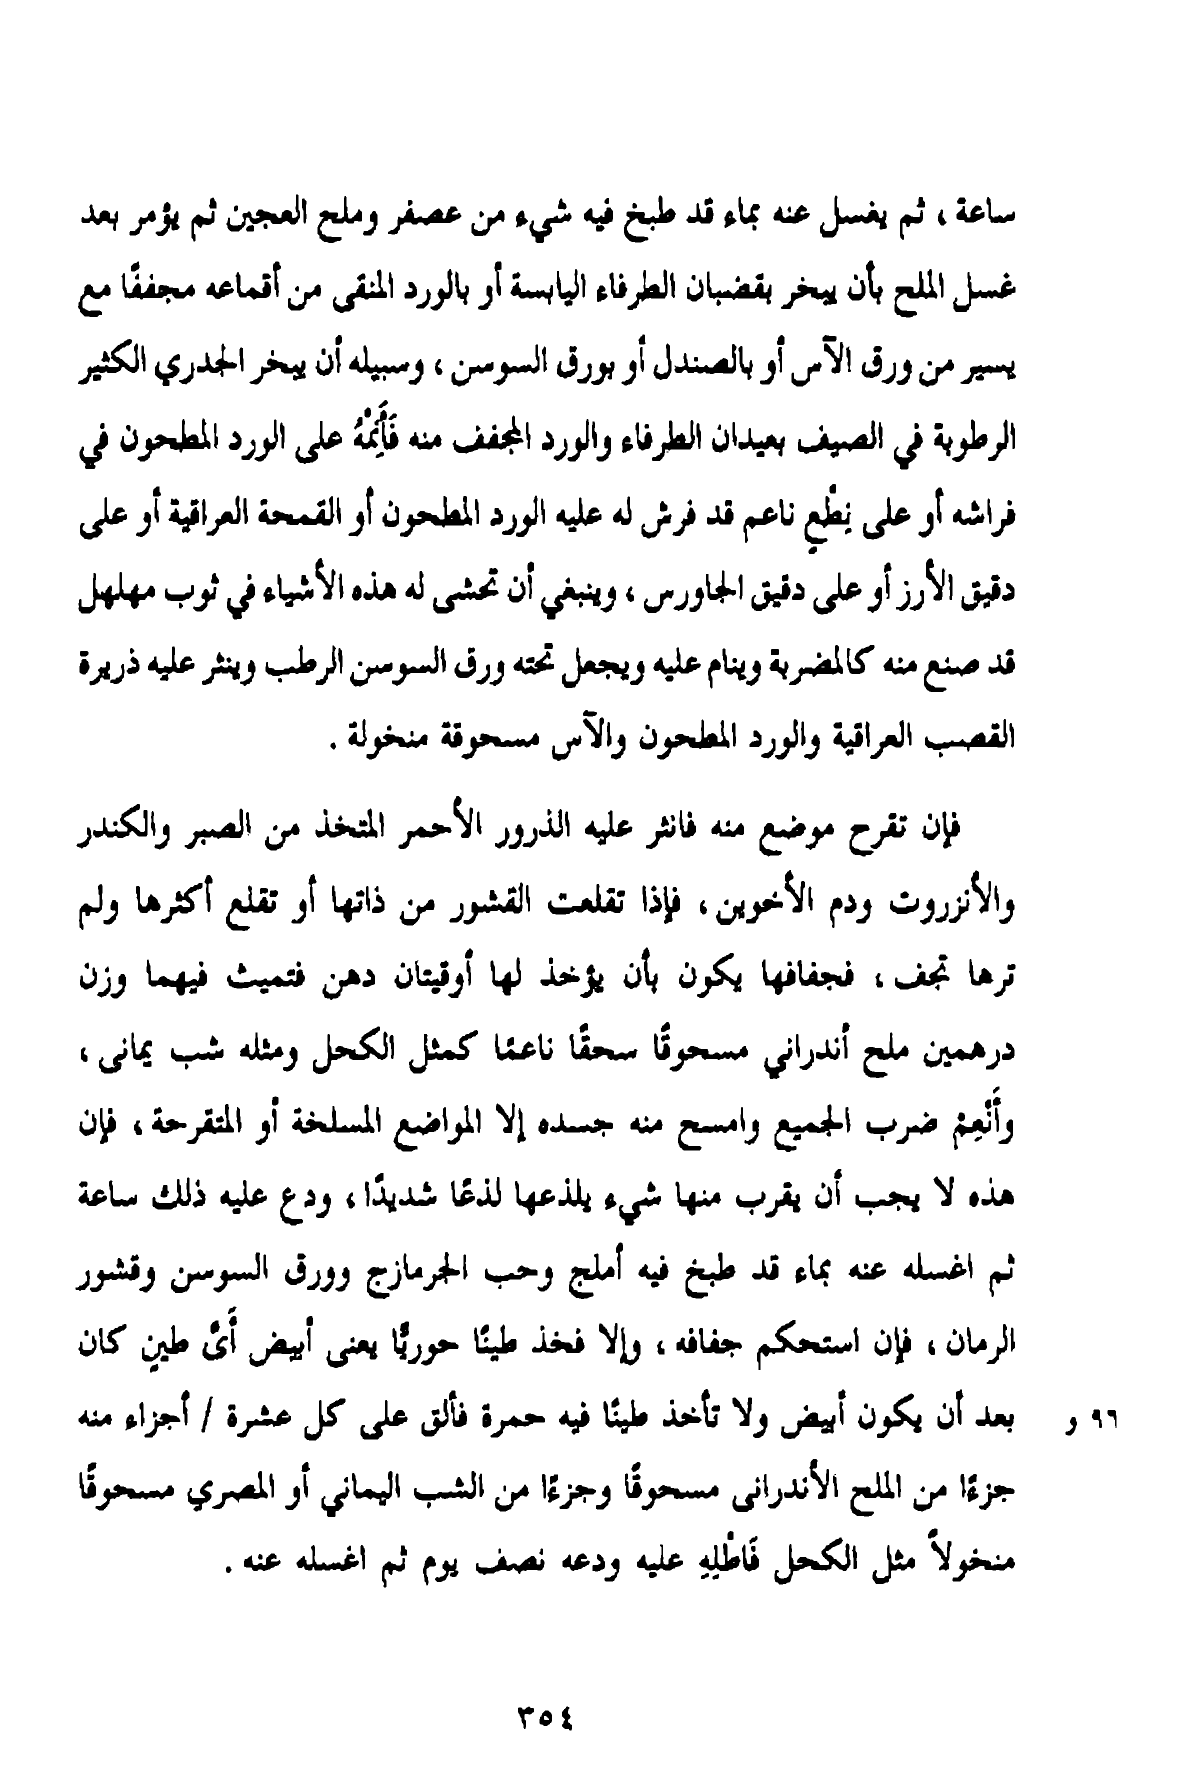 ساعة ، ثم يغسل عنه بماء قد طبخ فيه شيء من عصفر وملح العجين ثم يؤمر بعد
غسل الملح بأن يبخر بقضبان الطرفاء اليابسة أو بالورد المنقى من أقماعه مجففًا مع
يسير من ورق الآس أو بالصندل أو بورق السوسن ، وسبيله أن يبخر الجدري الكثير
الرطوبة في الصيف بعيدان الطرفاء والورد المجفف منه فَأَنِمْهُ على الورد المطحون في
فراشه أو على نِطْعٍ ناعم قد فرش له عليه الورد المطحون أو القمحة العراقية أو على
دقيق الأرز أو على دقيق الجاورس ، وينبغي أن تحشى له هذه الأشياء في ثوب مهلهل
قد صنع منه كالمضربة وينام عليه ويجعل تحته ورق السوسن الرطب وينثر عليه ذريرة
القصب العراقية والورد المطحون والآس مسحوقة منخولة .
فإن تقرح موضع منه فانثر عليه الذرور الأحمر المتخذ من الصبر والكندر
والأنزروت ودم الأخوين ، فإذا تقلعت القشور من ذاتها أو تقلع أكثرها ولم
ترها تجف ، فجفافها يكون بأن يؤخذ لها أوقيتان دهن فتميث فيهما وزن
درهمين ملح أندراني مسحوقًا سحقًا ناعمًا كمثل الكحل ومثله شب يمانى ،
وأَنْعِمْ ضرب الجميع وامسح منه جسده إلا المواضع المسلخة أو المتقرحة ، فإن
هذه لا يجب أن يقرب منها شيء يلذعها لذعًا شديدًا ، ودع عليه ذلك ساعة
ثم اغسله عنه بماء قد طبخ فيه أملج وحب الجرمازج وورق السوسن وقشور
الرمان ، فإن استحكم جفافه ، وإلا فخذ طينًا حوريًّا يعنى أبيض أَىَّ طينٍ كان
بعد أن يكون أبيض ولا تأخذ طينًا فيه حمرة فألق على كل عشرة / أجزاء منه ٩٦ و
جزءًا من الملح الأندرانى مسحوقًا وجزءًا من الشب اليماني أو المصري مسحوقًا
منخولاً مثل الكحل فَاطْلِهِ عليه ودعه نصف يوم ثم اغسله عنه .
٣٥٤